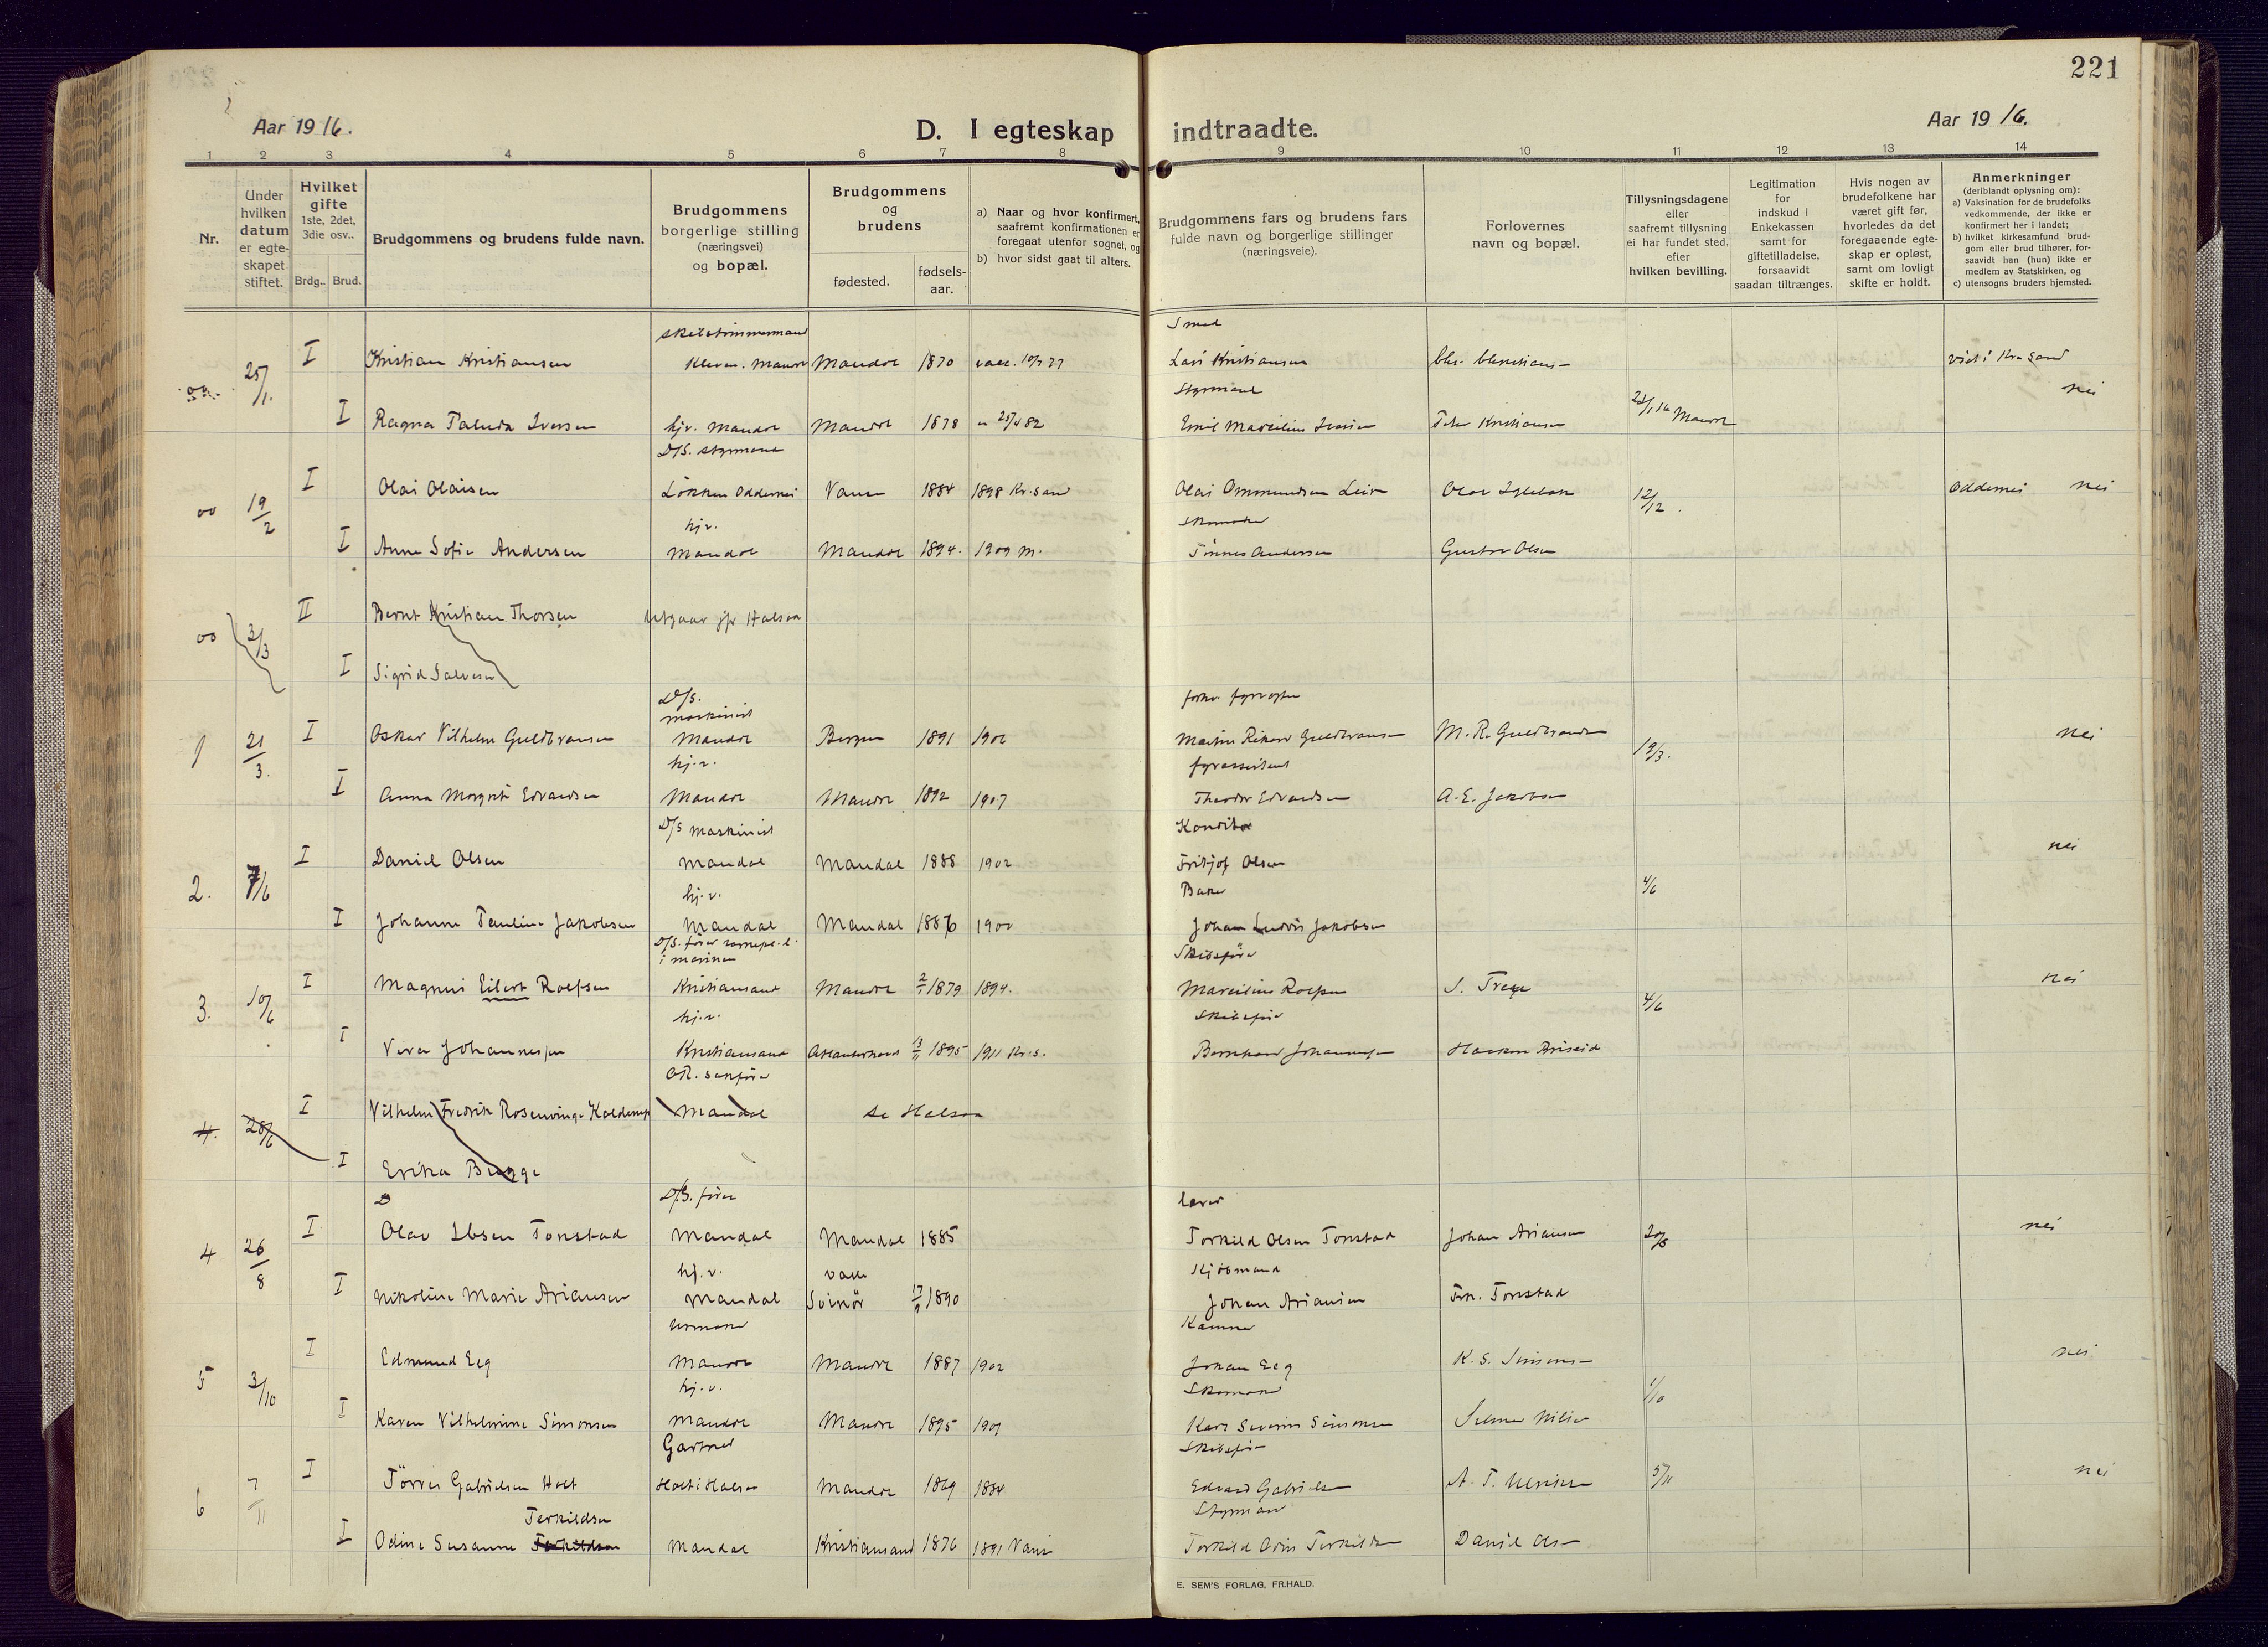 221
Aar 1916.
D. I egteskap indtraadte.
Aar 1916.
1 2 3 4 5 6 7 8 9 10 11 12 13 14
Nr.
Under hvilken datum er egte-skapet stiftet.
Hvilket gifte
1ste, 2det, 3die osv..
Brdg.. Brud.
Brudgommens og brudens fulde navn.
Brudgommens borgerlige stilling (næringsvei) og bopæl.
Brudgommens og brudens
fødested.
fødsels-aar.
a) Naar og hvor konfirmert, saafremt konfirmationen er foregaat utenfor sognet, og
b) hvor sidst gaat til alters.
Brudgommens fars og brudens fars fulde navn og borgerlige stillinger (næringsveie).
Forlovernes navn og bopæl.
Tillysningsdagene eller saafremt tillysning ei har fundet sted, efter hvilken bevilling.
Legitimation for indskud i Enkekassen samt for giftetilladelse, forsaavidt saadan tiltrænges.
Hvis nogen av brudefolkene har været gift før, hvorledes da det foregaaende egte-skap er opløst, samt om lovligt skifte er holdt.
Anmerkninger
(deriblandt oplysning om):
a) Vaksination for de brudefolks vedkommende, der ikke er konfirmert her i landet;
b) hvilket kirkesamfund brud-gom eller brud tilhører, for-saavidt han (hun) ikke er medlem av Statskirken, og
c) utensogns bruders hjemsted.
Smed
25/1. I Kristian Kristiansen Kleven. Mandal Mandal 1870 Lars Kristiansen viet i Kr.sand
Styrmand nei
I Ragna Iversen hjv. Mandal Mandal 1878 Emil Marcilius Iversen Peter Kristiansen Mandal
D/S. styrmand
oo 19/2 I Olai Olaisen Oddernes Vanse 1884 1898 Kr.sand Olai Ommundsen 12/12. Oddernes nei
hjv. Skomaker
I Anne Sofie Andersen Mandal Mandal 1894. 1909 M. Tønnes Andersen Gustav Olsen
oo 3/3 II Bernt Kristian Thorsen Utgaar jfr Halsaa
I Sigrid Salvesen
D/S. maskinist
1 21/3. I Oskar Vilhelm Guldbransen Mandal Bergen 1891 1906 Guldbransen M. R. Guldbrandsen 19/3. nei
hj.v. fyrassistent
I Anna Margrete Edvardsen Mandal Mandal 1892 1907 Theodor Edvardsen A. E. Jakobsen
D/S maskinist Konditor
2. 7/6 I Daniel Olsen Mandal Mandal 1888 1902 Fritjof Olsen 4/6 nei
hj.v. Baker
I Johanne Pauline Jakobsen Mandal Mandal 1886 1900 Johan Ludvig Jakobsen
D/S. fører i marinen Skibsfører
3. 10/6 I Magnus Eilert Roefsen Kristiansand Mandal 2/1 1879 1894. Marcilius Roefsen 4/6 nei
hj.v. Skibsfører
I Vera Johannessen Kristiansand Atlanterhavet 13/11 1895 1911 Kr.s. Bernhard Johannessen
O.R. sakfører
4. 28/6 I Vilhelm Fredrik Rosenvinge Kolderup Mandal se Halsaa
I Erika Bugge
D/S. fører lærer
4 26/8 I Olav Ibsen Tonstad Mandal Mandal 1885 Torkild Olsen Tonstad Johan Ariansen 20/8 nei
hj.v. Kjøbmand
I Nikoline Marie Ariansen Mandal Svinør 17/9 1890 Johan Ariansen Frk. Tonstad
Urmaker
5 3/10 I Edmund Eeg Mandal Mandal 1887 1902 Johan Eeg K. S. Simonsen 1/10 nei
hj.v. Skomaker
I Karen Vilhelmine Simonsen Mandal Mandal 1895 1909 Karl Severin Simonsen
Gartner Skibsfører
6 7/11 I Tørres Gabrielsen Holt Holt i Halsaa Mandal 1869 1884 Edvard Gabrielsen 5/11 nei
Terkildsen Styrmand
I Odine Susanne Mandal Kristiansand 1876 1891 Vanse Torkild Odin Terkildsen Daniel Olsen
E. SEM'S FORLAG, FR.HALD.